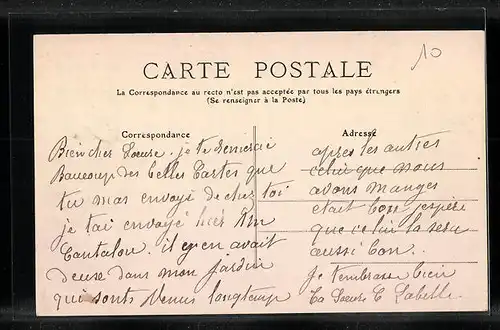 10
CARTE POSTALE
La Correspondance au recto n'est pas acceptée par tous les pays étrangers
(Se renseigner à la Poste)
Correspondance
Bien cher Soeure. je te remerai
Baucoup des Belles Cartes que
tu mas envoyé de chez toi
je tai envoyé hier un
Cantalou. il y en avait
deuse dans mon jardin
qui sont Venus longtemp
Adresse
apres les autres
celui que nous
avons manges
etait Bon jespere
que celui la sera
aussi bon.
je tembrasse bien
ta Soeure C Labelle